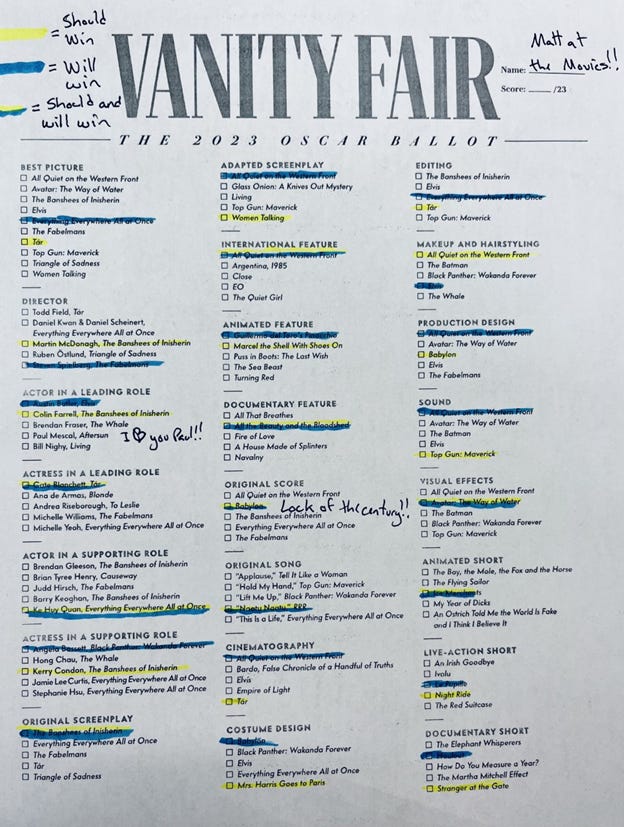 = Should
Win
= Will
win
= Should and
will win
VANITY FAIR
Matt at
Name: the Movies!!
Score: ____ /23
THE 2023 OSCAR BALLOT
BEST PICTURE
All Quiet on the Western Front
Avatar: The Way of Water
The Banshees of Inisherin
Elvis
Everything Everywhere All at Once
The Fabelmans
Tár
Top Gun: Maverick
Triangle of Sadness
Women Talking
DIRECTOR
Todd Field, Tár
Daniel Kwan & Daniel Scheinert,
Everything Everywhere All at Once
Martin McDonagh, The Banshees of Inisherin
Ruben Östlund, Triangle of Sadness
Steven Spielberg, The Fabelmans
ACTOR IN A LEADING ROLE
Austin Butler, Elvis
Colin Farrell, The Banshees of Inisherin
Brendan Fraser, The Whale
Paul Mescal, Aftersun
I ♡ you Paul!!
Bill Nighy, Living
ACTRESS IN A LEADING ROLE
Cate Blanchett, Tár
Ana de Armas, Blonde
Andrea Riseborough, To Leslie
Michelle Williams, The Fabelmans
Michelle Yeoh, Everything Everywhere All at Once
ACTOR IN A SUPPORTING ROLE
Brendan Gleeson, The Banshees of Inisherin
Brian Tyree Henry, Causeway
Judd Hirsch, The Fabelmans
Barry Keoghan, The Banshees of Inisherin
Ke Huy Quan, Everything Everywhere All at Once
ACTRESS IN A SUPPORTING ROLE
Angela Bassett, Black Panther: Wakanda Forever
Hong Chau, The Whale
Kerry Condon, The Banshees of Inisherin
Jamie Lee Curtis, Everything Everywhere All at Once
Stephanie Hsu, Everything Everywhere All at Once
ORIGINAL SCREENPLAY
The Banshees of Inisherin
Everything Everywhere All at Once
The Fabelmans
Tár
Triangle of Sadness
ADAPTED SCREENPLAY
All Quiet on the Western Front
Glass Onion: A Knives Out Mystery
Living
Top Gun: Maverick
Women Talking
INTERNATIONAL FEATURE
All Quiet on the Western Front
Argentina, 1985
Close
EO
The Quiet Girl
ANIMATED FEATURE
Guillermo del Toro's Pinocchio
Marcel the Shell With Shoes On
Puss in Boots: The Last Wish
The Sea Beast
Turning Red
DOCUMENTARY FEATURE
All That Breathes
All the Beauty and the Bloodshed
Fire of Love
A House Made of Splinters
Navalny
ORIGINAL SCORE
All Quiet on the Western Front
Babylon
Lock of the century!!
The Banshees of Inisherin
Everything Everywhere All at Once
The Fabelmans
ORIGINAL SONG
"Applause," Tell It Like a Woman
"Hold My Hand," Top Gun: Maverick
"Lift Me Up," Black Panther: Wakanda Forever
"Naatu Naatu," RRR
"This Is a Life," Everything Everywhere All at Once
CINEMATOGRAPHY
All Quiet on the Western Front
Bardo, False Chronicle of a Handful of Truths
Elvis
Empire of Light
Tár
COSTUME DESIGN
Babylon
Black Panther: Wakanda Forever
Elvis
Everything Everywhere All at Once
Mrs. Harris Goes to Paris
EDITING
The Banshees of Inisherin
Elvis
Everything Everywhere All at Once
Tár
Top Gun: Maverick
MAKEUP AND HAIRSTYLING
All Quiet on the Western Front
The Batman
Black Panther: Wakanda Forever
Elvis
The Whale
PRODUCTION DESIGN
All Quiet on the Western Front
Avatar: The Way of Water
Babylon
Elvis
The Fabelmans
SOUND
All Quiet on the Western Front
Avatar: The Way of Water
The Batman
Elvis
Top Gun: Maverick
VISUAL EFFECTS
All Quiet on the Western Front
Avatar: The Way of Water
The Batman
Black Panther: Wakanda Forever
Top Gun: Maverick
ANIMATED SHORT
The Boy, the Mole, the Fox and the Horse
The Flying Sailor
Ice Merchants
My Year of Dicks
An Ostrich Told Me the World Is Fake
and I Think I Believe It
LIVE-ACTION SHORT
An Irish Goodbye
Ivalu
Le Pupille
Night Ride
The Red Suitcase
DOCUMENTARY SHORT
The Elephant Whisperers
Haulout
How Do You Measure a Year?
The Martha Mitchell Effect
Stranger at the Gate